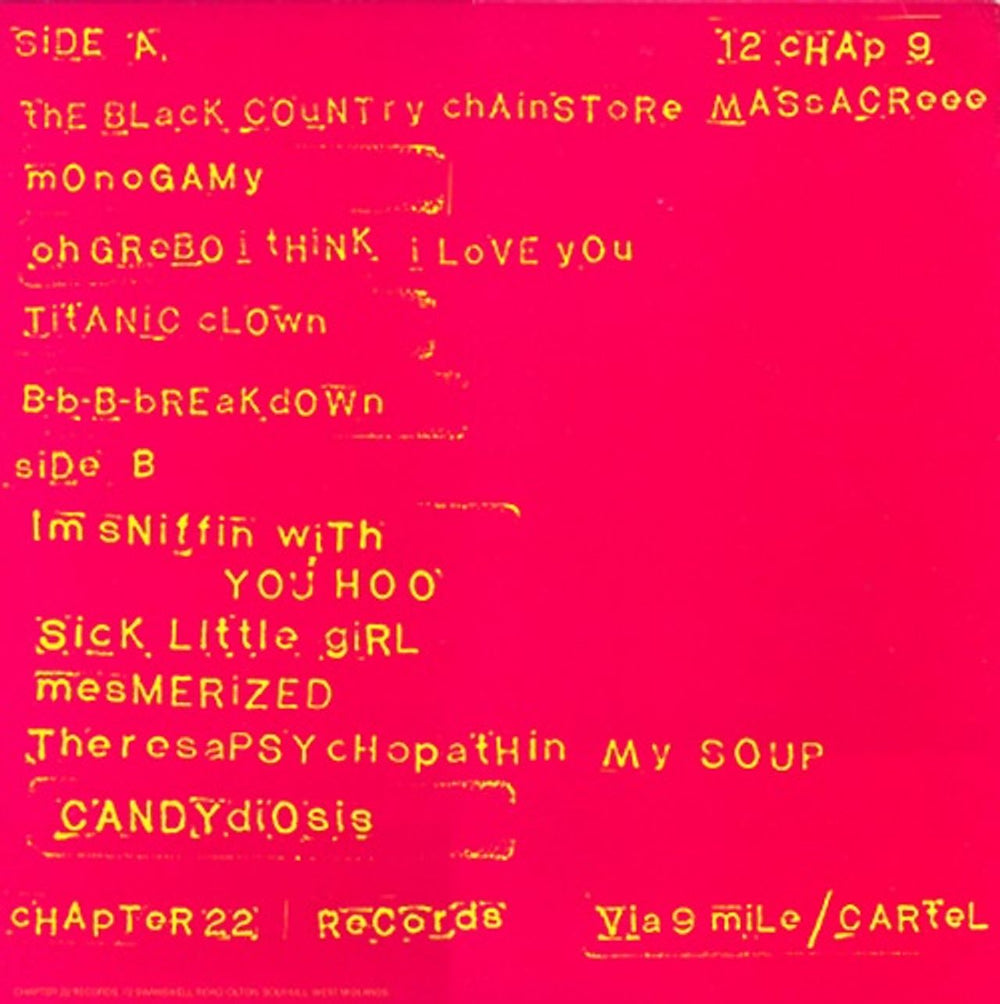 SiDE A. 12 cHAp 9
thE BLacK COuNTry chAinSToRe MASsACReee
mOnoGAMy
oh GReBO i tHiNK i LoVE yOu
TitANiC cLOwn
B-b-B-bREaKdOWn
siDe B
Im sNiffin wiTh
YOU HOO
SicK LIttle giRL
mesMERiZED
TheresaPSYcHopatHin My SOUP
CANDYdiOsis
cHApTeR 22 | ReCords Via 9 miLe / CARTeL
CHAPTER 22 RECORDS, 72 ROAD, OLTON, SOLIHULL, WEST MIDLANDS